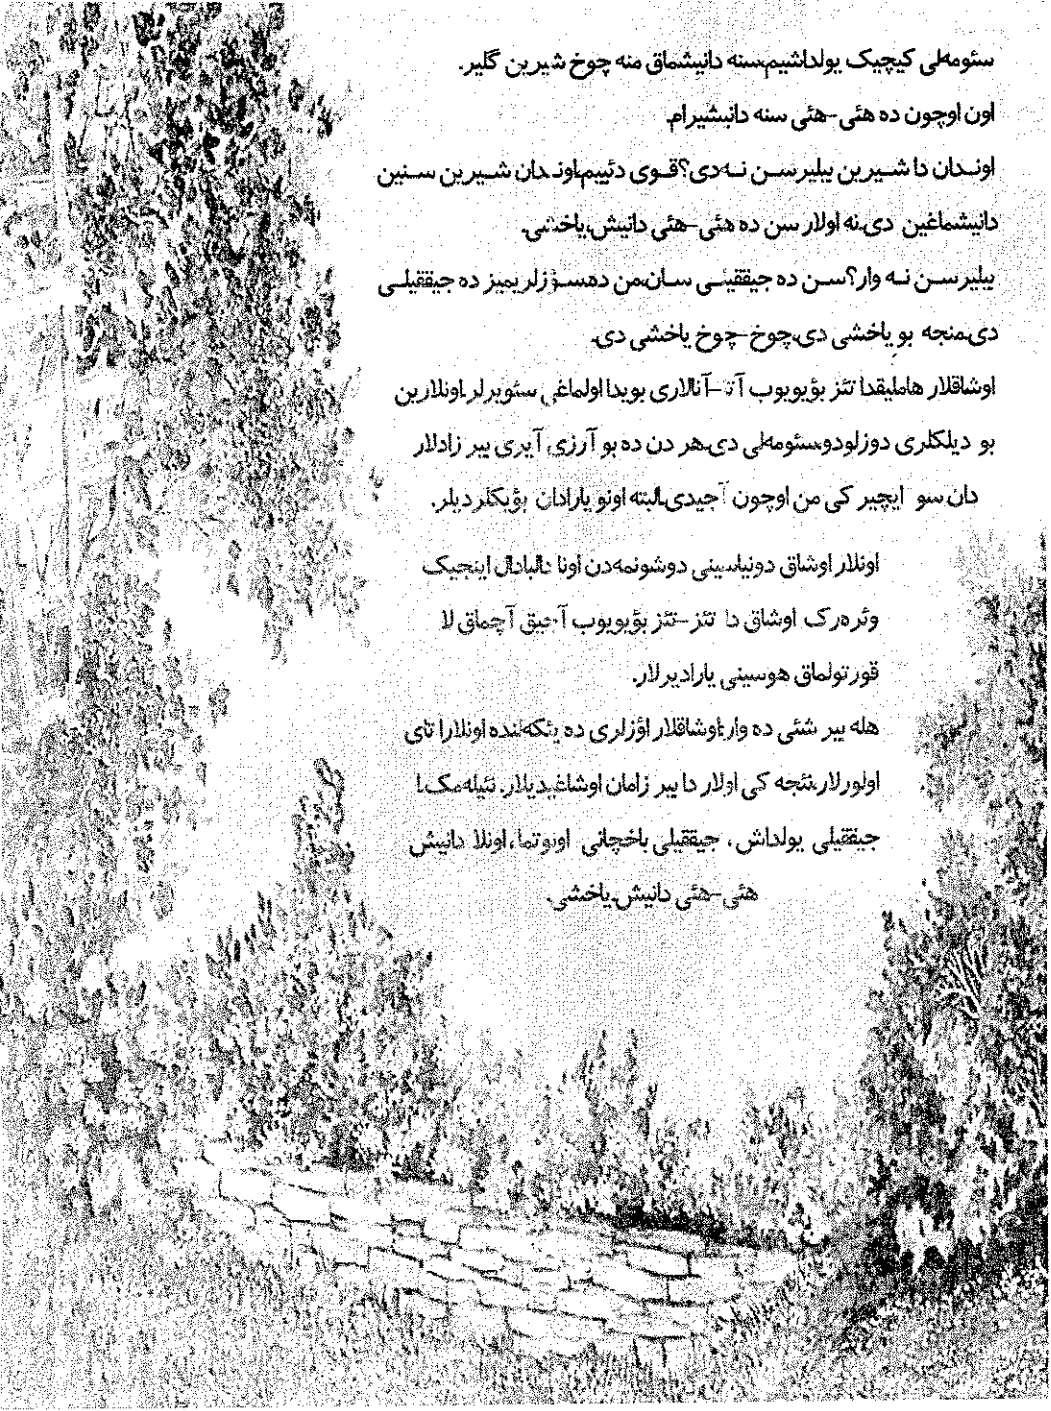 سئومه‌لی کیچیک یولداشیم،سنه دانیشماق منه چوخ شیرین گلیر.
اون اوچون ده هئی-هئی سنه دانیشیرام.
اوندان دا شیرین بیلیرسن نه‌دی؟قوی دئییم،اوندان شیرین سنین
دانیشماغین دی.نه اولار سن ده هئی-هئی دانیش،یاخشی.
بیلیرسن نه وار؟سن ده جیققیلی سان،من ده،سؤزلریمیز ده جیققیلی
دی.منجه بو یاخشی دی،چوخ-چوخ یاخشی دی.
اوشاقلار هاملیقدا تئز بؤیویوب آتا-آنالاری بویدا اولماغی سئویرلر.اونلارین
بو دیلکلری دوزلودو،سئومه‌لی دی.هر دن ده بو آرزی آیری بیر زادلار
دان سو ایچیر کی من اوچون آجیدی.البته اونو یارادان بؤیکلردیلر.
اونلار اوشاق دونیاسینی دوشونمه‌دن اونا دالبادال اینجیک
وئره‌رک اوشاق دا تئز-تئز بؤیویوب آجیق آچماق لا
قورتولماق هوسینی یارادیرلار.
هله بیر شئی ده وار:اوشاقلار اؤزلری ده یئکه‌لنده اونلارا تای
اولورلار،نئجه کی اولار دا بیر زامان اوشاغیدیلار. نئیله‌مک.!
جیققیلی یولداش، جیققیلی باخچانی اونوتما، اونلا دانیش
هئی-هئی دانیش.یاخشی.